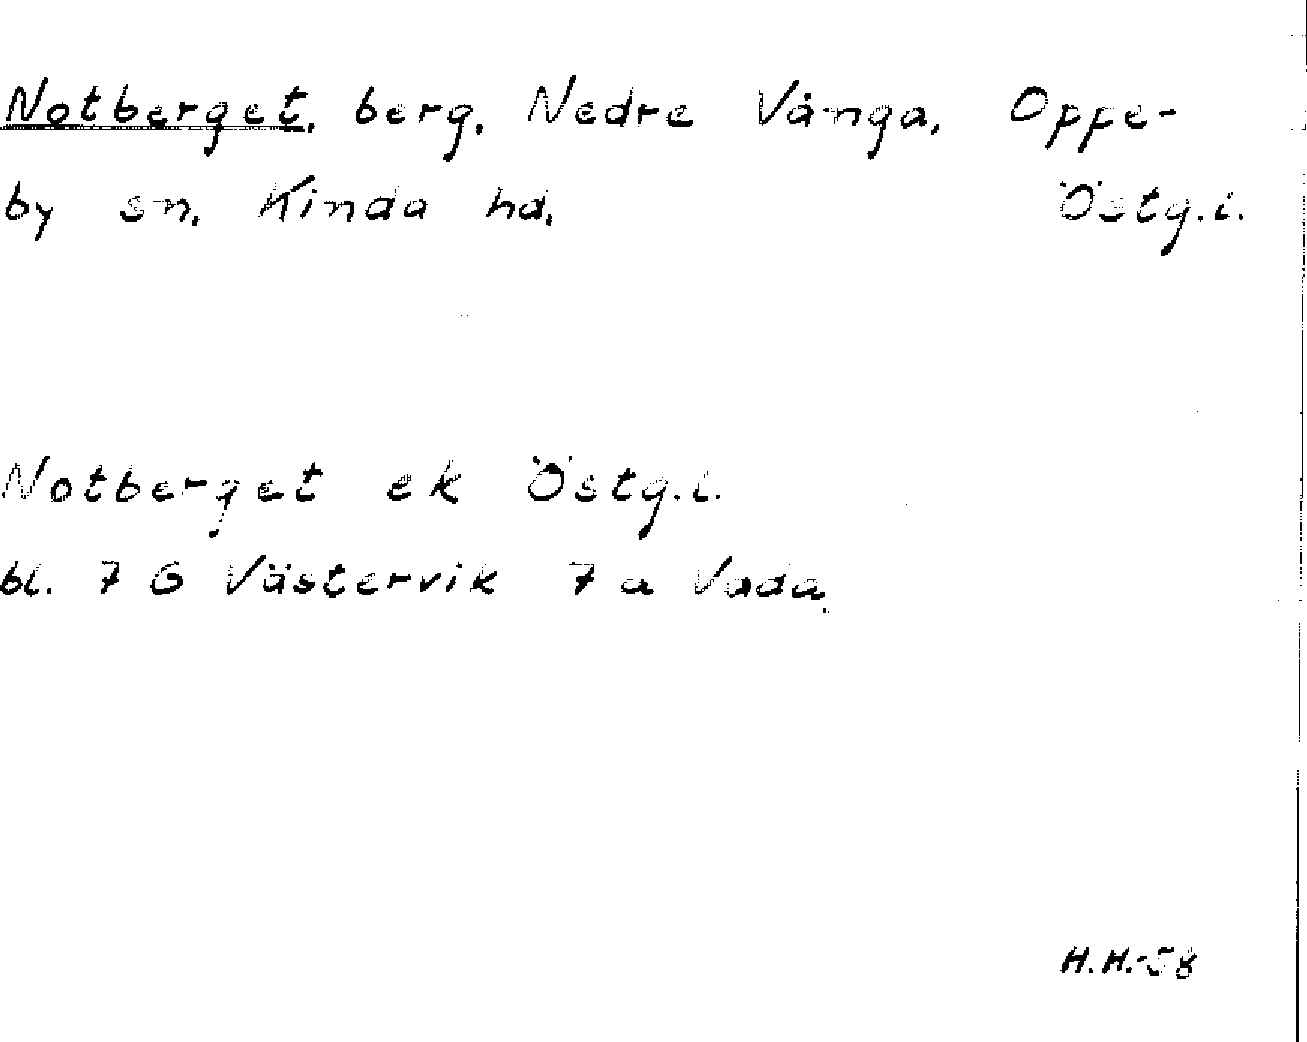 Notberget, berg, Nedre Vånga, Oppe-
by sn, Kinda hd, Östg.l.
Notberget ek Östg.l.
bl. 7 G Västervik 7 a Vada
H.H.-58